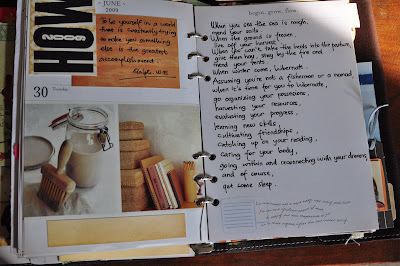 HOW
2009
- JUNE -
2009
To be yourself in a world
that is constantly trying
to make you something
else is the greatest
accomplishment.
30 Tuesday
begin. grow. flow.
When you see the sea is rough,
mend your sails.
When the ground is frozen,
live off your harvest.
When you can't take the herds into the pasture,
give them hay, stay by the fire and
mend your tents
When winter come, hibernate.
Assuming you're not a fisherman or a nomad,
when it's time for you to hibernate,
go organizing your possessions,
harvesting your resources,
evaluating your progress,
learning new skills,
cultivating friendships,
catching up on your reading,
caring for your body,
going within and reconnecting with your dreams,
and of course,
get some sleep.